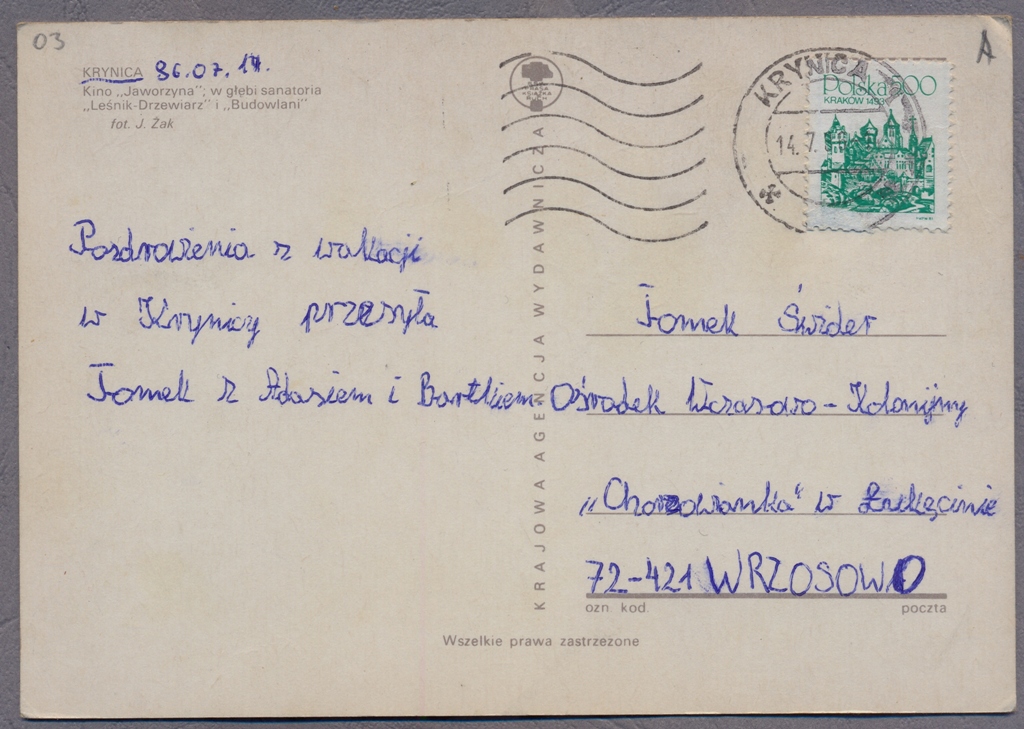 03
A
KRYNICA 86.07.14.
Kino „Jaworzyna"; w głębi sanatoria
„Leśnik-Drzewiarz" i „Budowlani"
fot. J. Żak
PRASA
KSIĄŻKA
RUCH
KRYNICA
14.7.
Polska 500
KRAKÓW 1493
Pozdrowienia z wakacji
w Krynicy przesyła
Tomek z Adasiem i Bartkiem
KRAJOWA AGENCJA WYDAWNICZA
Tomek Świder
Ośrodek Wczasowo - Kolonijny
„Chorzowianka" w Łukęcinie
72-421 WRZOSOWO
ozn. kod. poczta
Wszelkie prawa zastrzeżone